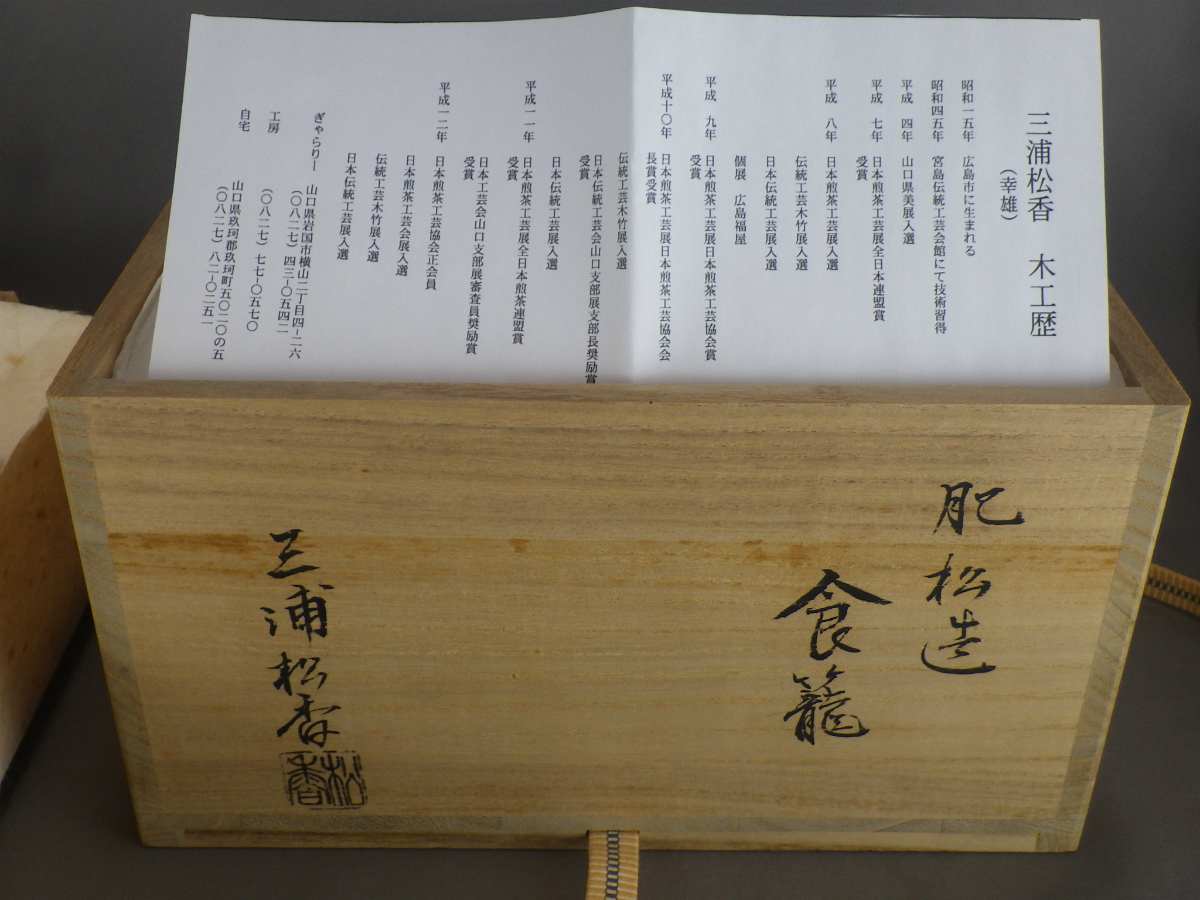 三浦松香 木工歴
(幸雄)
昭和一五年 広島市に生まれる
昭和四五年 宮島伝統工芸会館にて技術習得
平成 四年 山口県美展入選
平成 七年 日本煎茶工芸展全日本連盟賞
受賞
平成 八年 日本煎茶工芸展入選
伝統工芸木竹展入選
日本伝統工芸展入選
個展 広島福屋
平成 九年 日本煎茶工芸展日本煎茶工芸協会賞
受賞
平成十〇年 日本煎茶工芸展日本煎茶工芸協会会
長賞受賞
伝統工芸木竹展入選
日本伝統工芸会山口支部展支部長奨励賞
受賞
日本伝統工芸展入選
平成一一年 日本煎茶工芸展全日本煎茶連盟賞
受賞
日本工芸会山口支部展審査員奨励賞
受賞
平成一二年 日本煎茶工芸協会正会員
日本煎茶工芸会展入選
伝統工芸木竹展入選
日本伝統工芸展入選
ぎゃらりー 山口県岩国市横山二丁目四-二六
(〇八二七)四三-〇五四二
工房 (〇八二七)七七-〇五七〇
自宅 山口県玖珂郡玖珂町五〇二〇の五
(〇八二七)八二-〇二五一
肥松造
食籠
三浦松香
松香